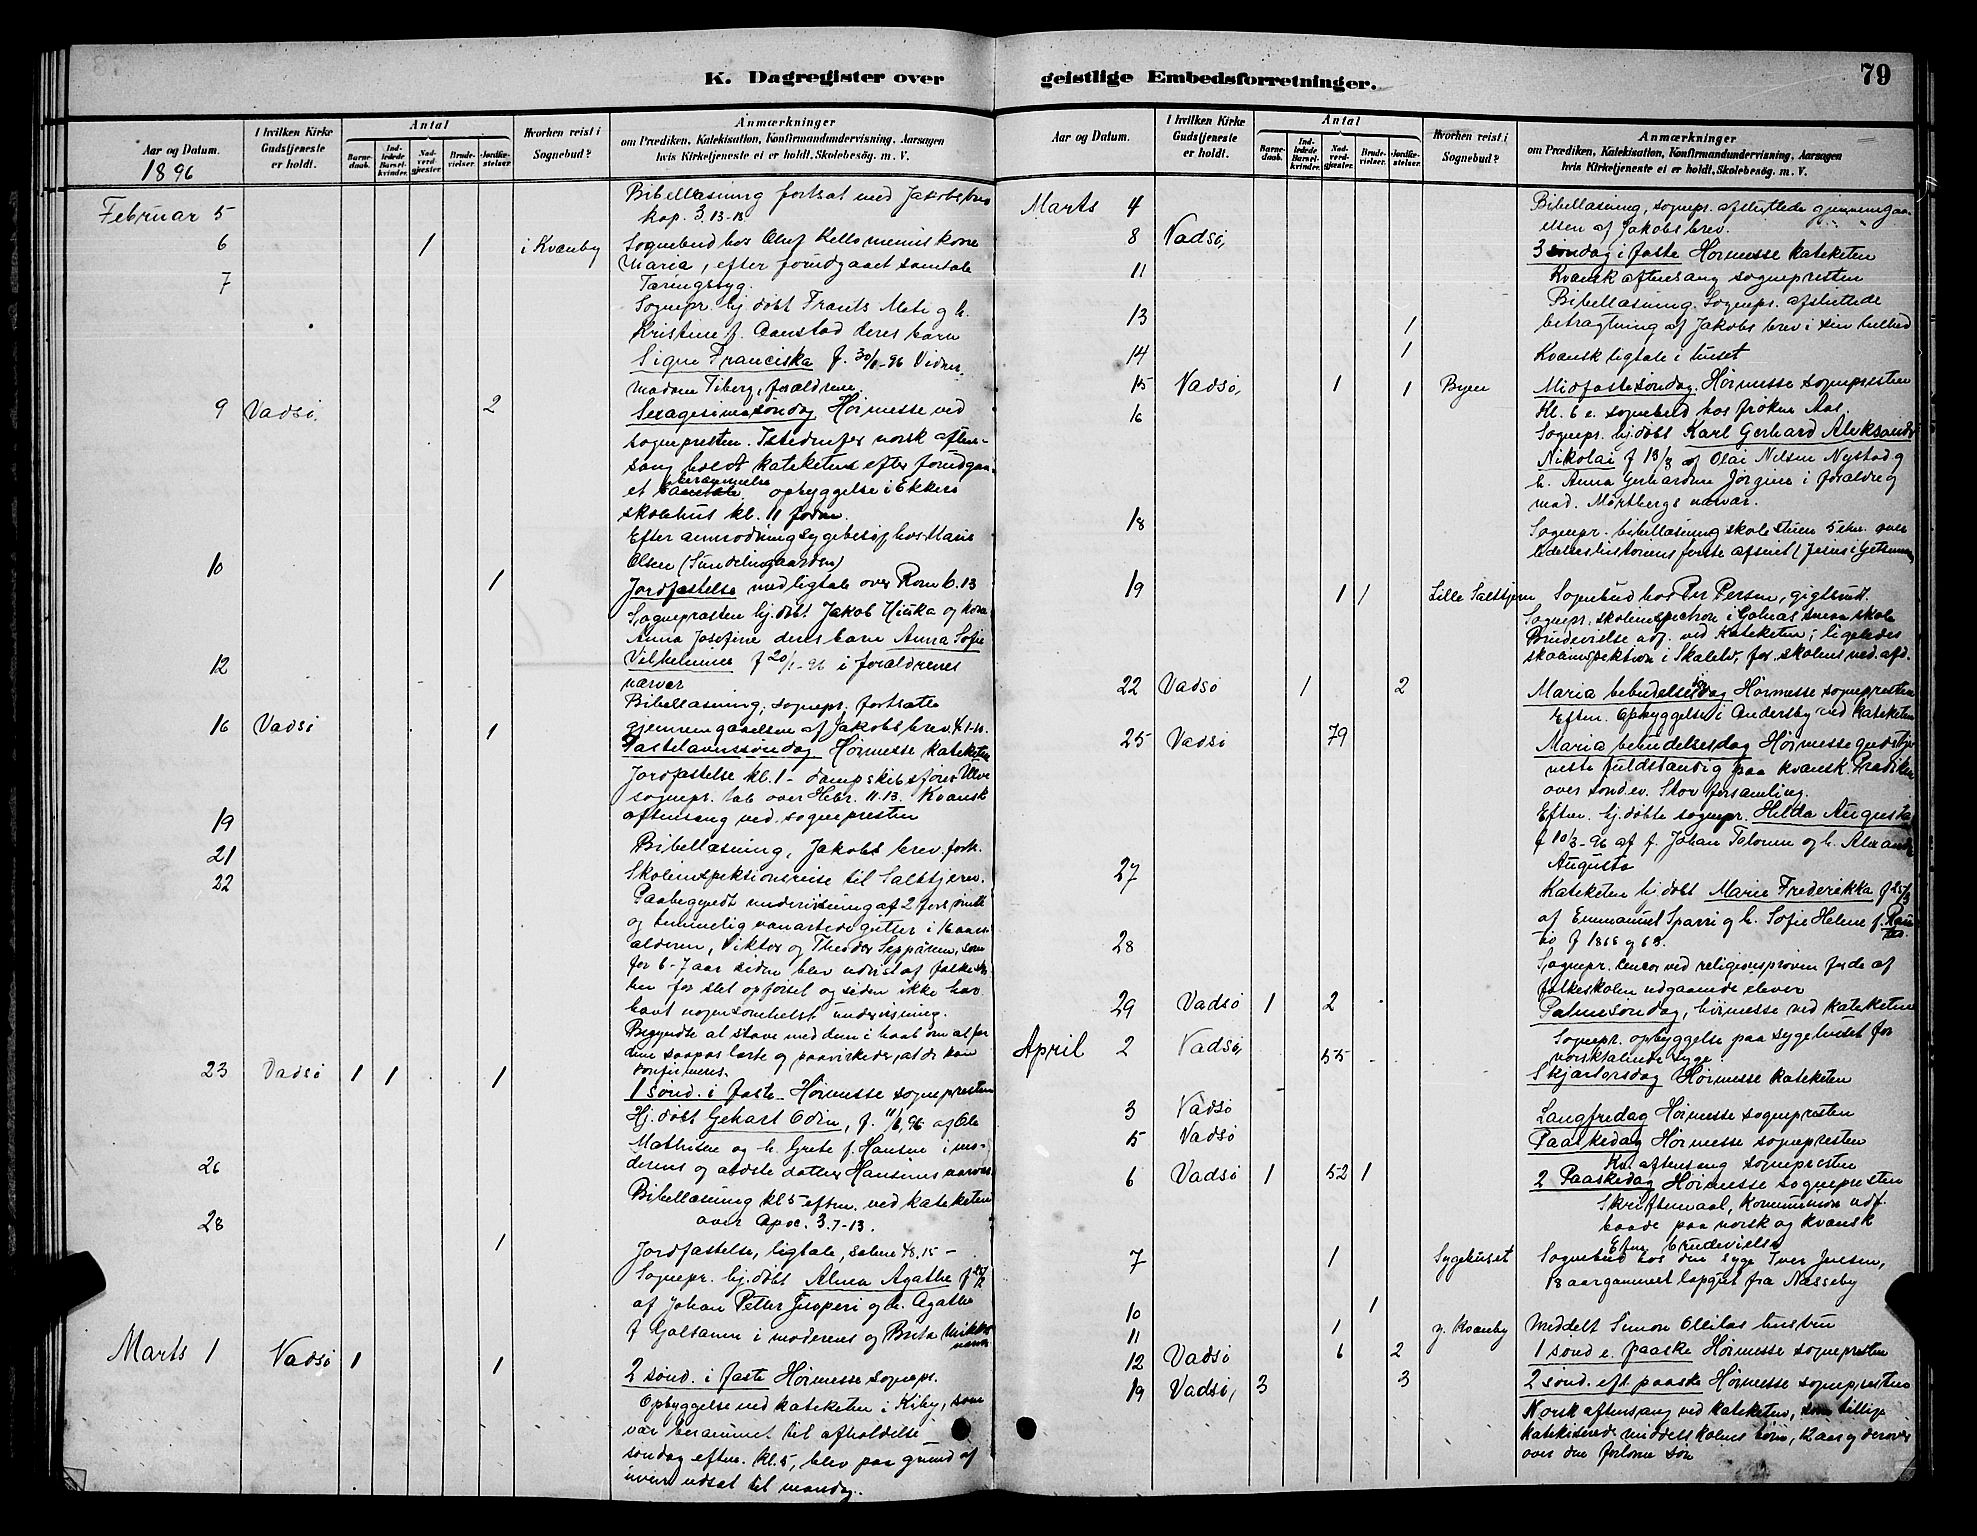 K. Dagregister over
Aar og Datum.
I hvilken Kirke Gudstjeneste er holdt.
Antal
Barnedaab.
Indledede Barselkvinder.
Nadverdgjæster.
Brudevielser.
Jordfæstelser.
Hvorhen reist i Sognebud?
Anmærkninger
om Prædiken, Katekisation, Konfirmandundervisning, Aarsagen
hvis Kirketjeneste ei er holdt, Skolebesög. m. V.
1896
Februar 5
Bibellæsning fortsat med Jakobs brev
kap. 3. 13-18
6 1 i Kvænby Sognebud hos Oluf Kellomenis kone
Maria, efter forudgaaet samtale
7
Sognepr. hj. döbt Frants Meti og h.
Kristine f. Aanstad deres barn
Signe Franciska f. 30/1-96 Vidner
madam Tiberg, forældrene.
9 Vadsö. 2 Sexagesimasöndag Höimesse ved
sognepresten. Istedenfor norsk aften-
sang holdt kateketen efter forudgaa-
et opbyggelse i Ekkerö
skolehus kl. 11 form
Efter anmodning sygebesög hos Maria
Olsen
10 1 Jordfæstelse med ligtale over Rom 6. 13
Sognepresten hj. döbt Jakob Niuka og kone
Anna Josefine deres barn Anna Sofie
12 Vilhelmine f 20/1-96 i forældrenes
nærvær
Bibellæsning; sognepr. fortsatte
16 Vadsö 1 gjennemgaaelsen af Jakobs brev. 4. 1-10.
Fastelavnssöndag Höimesse kateketen
Jordfæstelse kl. 1 - dampskibsförer
sognepr. tale over Hebr. 11. 13. Kvænsk
aftensang ved sognepresten
19
21 Bibellæsning, Jakobs brev. forts.
22 Skoleinspektionsreise til Saltbjern.
Paabegyndt undervisning af 2 forsömte
og temmelig vanartede gutter i 16 aars
alderen, Viktor og Theodor Seppänen, som
for 6-7 aar siden blev udvist af folkesko-
len for slet opförsel og siden ikke har
havt nogensomhelst undervisning.
Begyndte at stave med dem i haab om at faa
dem saapas lærte og paavirkede, at de kan
konfirmeres.
23 Vadsö 1 1 1
1 sönd. i faste. Höimesse sognepresten
Hj. döbt Gehart Odin, f. 11/1 96 af Ole
Mathisen og h. Grete f. Hansen i mo-
26 derens og ældste datter Hansines nærvær
Bibellæsning kl 5 eftm. ved kateketen
28 over Apoc. 3. 7-13.
1 Jordfæstelse, ligtale, salme 48. 15 -
Sognepr. hj. döbt Alma Agathe f
af Johan Petter Jusperi og h. Agathe
Marts 1 Vadsö 1 1
2 sönd. i faste Höimesse sognepr.
Opbyggelse ved kateketen i Kiby, som
var berammet til afholdelse
söndag eftm. kl. 5, blev paa grund af
uveir udsat til mandag.
geistlige Embedsforretninger.
79
Aar og Datum.
I hvilken Kirke Gudstjeneste er holdt.
Antal
Barnedaab.
Indledede Barselkvinder.
Nadverdgjæster.
Brudevielser.
Jordfæstelser.
Hvorhen reist i Sognebud?
Anmærkninger
om Prædiken, Katekisation, Konfirmandundervisning, Aarsagen
hvis Kirketjeneste ei er holdt, Skolebesög. m. V.
Marts 4 Bibellæsning, sognepr. afsluttede gjennemgaa-
elsen af Jakobs brev.
8 Vadsö,
3 söndag i faste Höimesse kateketen
11 Kvænsk aftensang sognepresten
Bibellæsning. Sognepr. afsluttede
13 1 betragtning af Jakobs brev i sin helhed
14 1 Kvænsk ligtale i huset
15 Vadsö, 1 1 Byen Midfastesöndag. Höimesse sognepresten
16 Kl. 6 e. sognebud hos fröken Aas.
Sognepr. hj. döbt Karl Gerhard Aleksander
Nikolai f 13/3 af Olai Nilsen Nystad og
h. Anna Gerhardine Jörgine i forældre og
mad. Mortbergs nærvær.
18
Sognepr. bibellæsning skolestuen 5 eftm. over
lidelseshistoriens förste afsnit (Jesus i Getsemane
19 1 1 Lille Saltbjern Sognebud hos Per Persen, gigtsvæk.
Sognepr. skoleinspektion i Golnæs
Brudevielse adj. ved Kateketen; ligeledes
skoleinspektion i Skalelv, for skolens ned. afd.
22 Vadsö 1 2 Maria bebudelsesdag Höimesse sognepresten
Eftm. Opbyggelse i Andersby ved kateketen
25 Vadsö 79 Maria bebudelsesdag Höimessegudstje-
neste fuldstændig paa kvænsk. Prædiken
over sönd. ev. Stor forsamling.
Eftm. hj. döbte sognepr. Hilda Augusta
f 10/3-96 af f. Johan Tolonen og h. Alexandra
27 Augusta
Kateketen hj. döbt Marie Frederikka f 25/3
af Emmanuel Sparri og h. Sofie Helene f.
28 f 1866 og 69.
Sognepr. censor ved religionspröven for de af
folkeskolen udgaaende elever
29 Vadsö 1 2 Palmesöndag, höimesse ved kateketen
Sognepr. opbyggelse paa sygehuset for
norsktalende syge.
April 2 Vadsö, 55
Skjærtorsdag Höimesse kateketen
3 Vadsö Langfredag Höimesse sognepresten
5 Vadsö Paaskedag Höimesse sognepresten
Kv. aftensang sognepresten
6 Vadsö 1 52 1 2 Paaskedag Höimesse sognepresten
Skriftemaal, Kommunion udf.
baade paa norsk og kvænsk
Eftm brudevielse
7 1 Sygehuset Sognebud hos den syge Iver Jensen,
18 aar gammel lapgut fra Næsseby
10 1
11 1 y. Kvænby Meddelt Simon Ollilas hustru
12 Vadsö 6 2 1 sönd e. paaske Höimesse sognepresten
19 Vadsö, 3 3 2 sönd. eft. paaske Höimesse sognepresten
Norsk aftensang ved kateketen, som tillige
katekiserede middelskolens börn, 12 aar og derover
over den fortorne sön